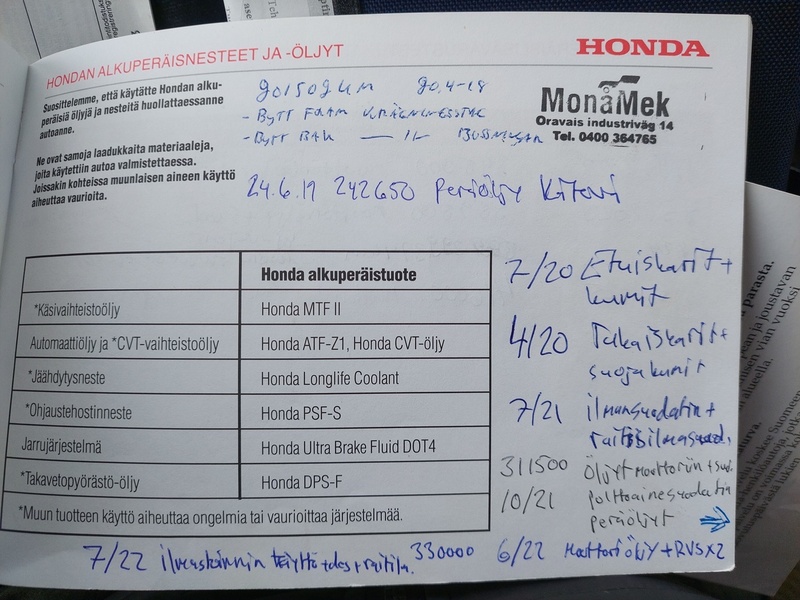 HONDAN ALKUPERÄISNESTEET JA -ÖLJYT
HONDA
Suosittelemme, että käytätte Hondan alku-
peräisiä öljyjä ja nesteitä huollattaessanne
autoanne.
Ne ovat samoja laadukkaita materiaaleja,
joita käytettiin autoa valmistettaessa.
Joissakin kohteissa muunlaisen aineen käyttö
aiheuttaa vaurioita.
20.4-18
- BYTT FRAM KRÄNGNINGSSTAG
- BYTT BAK —11— BUSSNINGAR
MonåMek
Oravais industriväg 14
Tel. 0400 364765
24.6.19 242650 Periöljy Kitovi
Honda alkuperäistuote
*Käsivaihteistoöljy
Honda MTF II
Automaattiöljy ja *CVT-vaihteistoöljy
Honda ATF-Z1, Honda CVT-öljy
*Jäähdytysneste
Honda Longlife Coolant
*Ohjaustehostinneste
Honda PSF-S
Jarrujärjestelmä
Honda Ultra Brake Fluid DOT4
*Takavetopyörästö-öljy
Honda DPS-F
*Muun tuotteen käyttö aiheuttaa ongelmia tai vaurioittaa järjestelmää.
7/20 Etuiskarit+
kumit
4/20 Takaiskarit+
suojakumit
7/21 ilmansuodatin+
raitisilmasuod.
311500 Öljyt Moottoriin + suod.
10/21 polttoainesuodatin
periöljyt
7/22 ilmastoinnin täyttö+des+raitila.
330000 6/22 Moottoriöljy+RVSX2